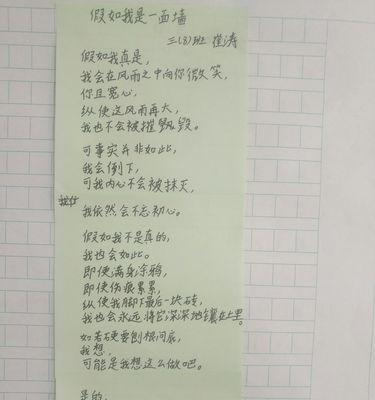 假如我是一面墙
三(8)班 崔涛
假如我真是,
我会在风雨之中向你微笑,
你且宽心,
纵使这风雨再大,
我也不会被摧毁。
可事实并非如此,
我会倒下,
可我内心不会被抹灭,
我依然会不忘初心。
假如我不是真的,
我也会如此。
即便满身涂鸦,
即使伤痕累累,
纵使我脚下最后一块砖,
我也会永远将它深深地镶在土里。
如若硬要刨根问底,
我想,
可能是我想这么做吧。
是的,